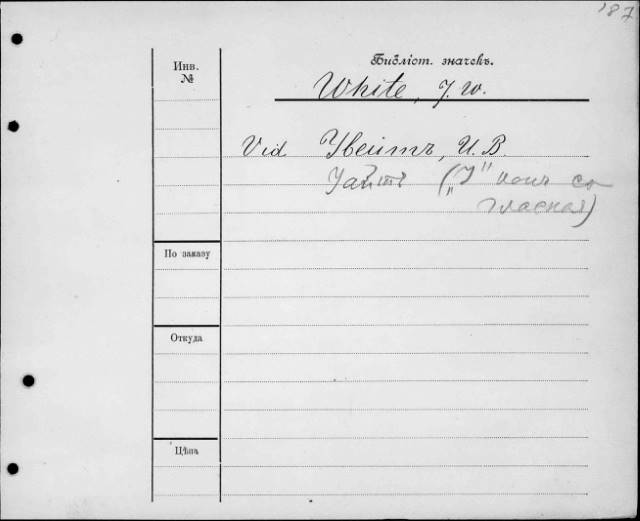 187
Инв.
№
Библіот. значекъ.
White, J. W.
Vid Увеитъ, И. В.
Уайтъ („У" какъ со
гласная)
По заказу
Откуда
Цѣна